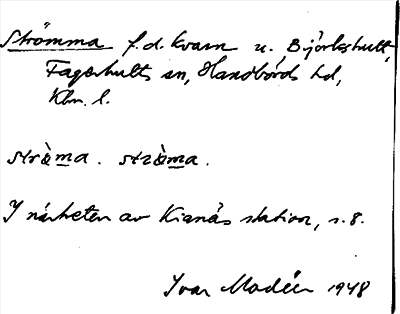 Strömma f.d. kvarn u. Björkshult,
Fagerhults sn, Handbörds hd,
Klm. l.
stròma. stròma.
I närheten av Kianäs station, s. 8.
Ivar Modéer 1948